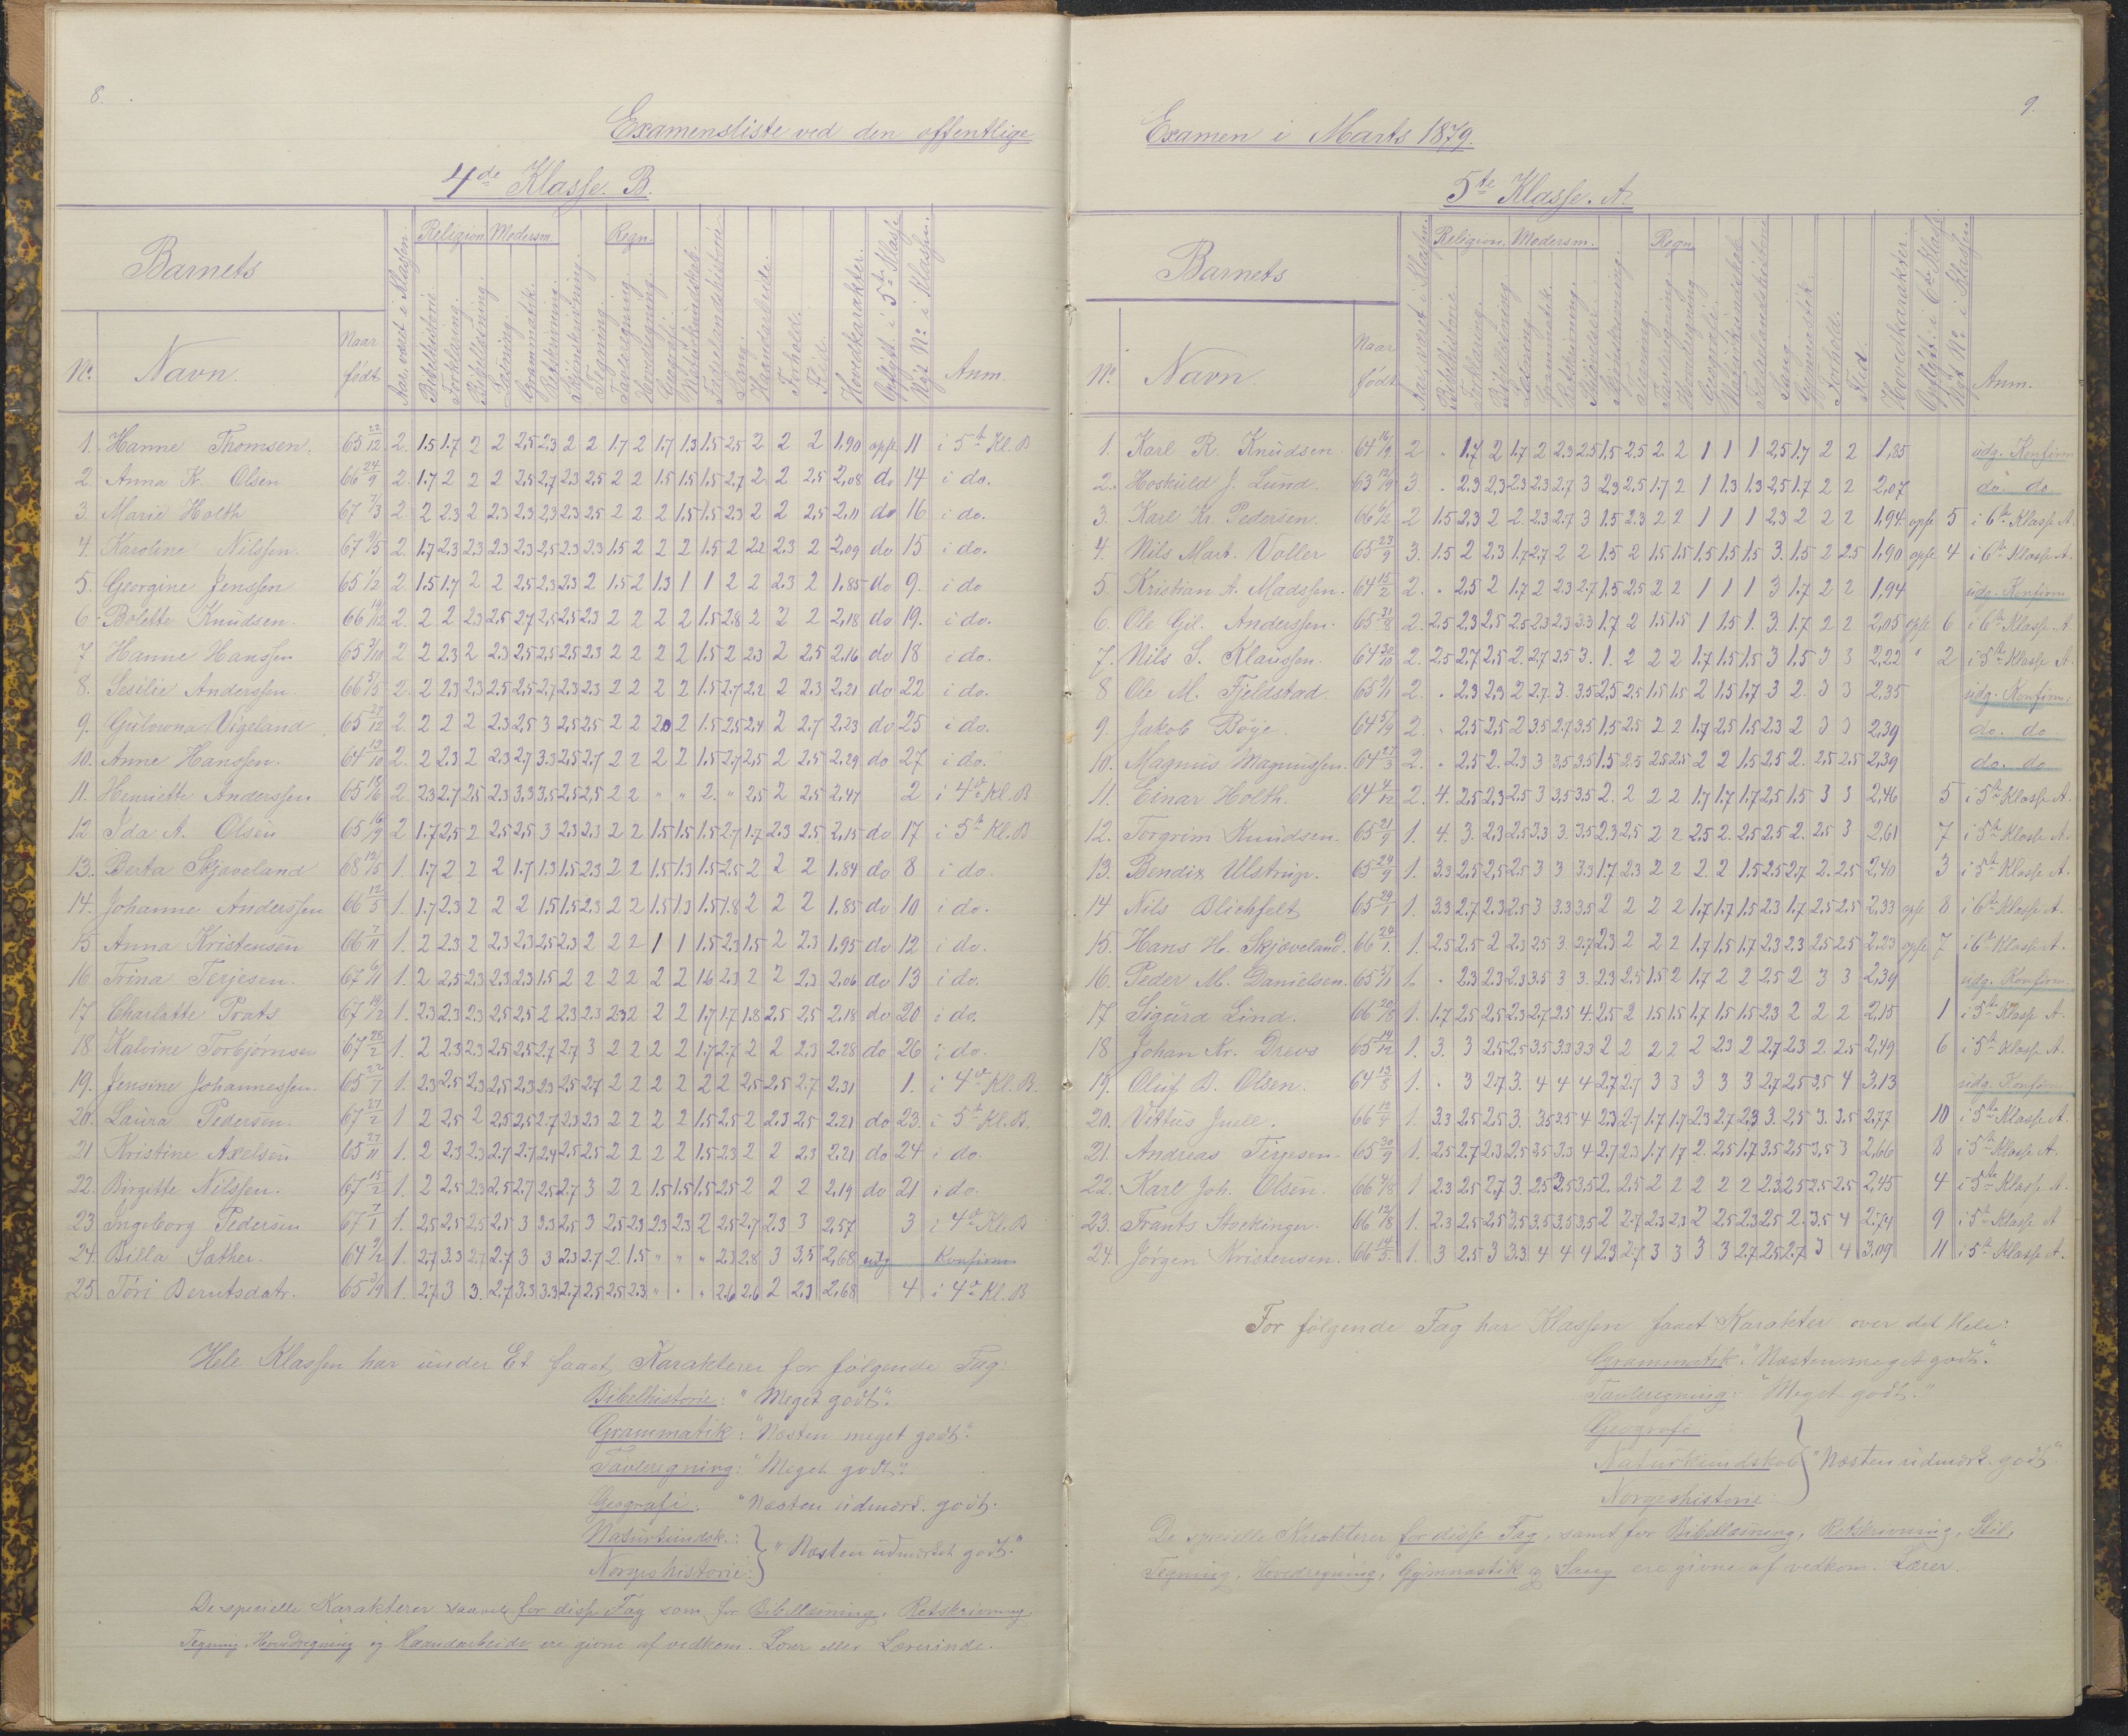 8.
Examensliste ved den offentlige
4de Klasse. B.
Barnets
Religion Modersm. Regn.
No Navn. Naar født Aar været i Klassen. Bibelhistorie. Forklaring. Bibellæsning. Læsning. Grammatik. Retskrivning. Skjønskrivning. Tegning. Tavleregning. Hovedregning. Geografi. Naturkundskab. Fædrelandshistorie. Sang. Haandarbeide. Forhold. Flid. Hovedkarakter. Opflytt. i 5te Klasse Nyt No i Klassen. Anm.
1. Hanne Thomsen. 65 22/12 2. 1.5 1.7 2 2 2.5 2.3 2 2 1.7 2 1.7 1.3 1.5 2.5 2 2 2 1.90 opfl 11 i 5te Kl. B
2. Anna K. Olsen 66 24/9 2. 1.7 2 2 2 2.5 2.7 2.3 2.5 2 2 1.5 1.5 1.5 2.7 2 2 2.5 2,08 do 14 i do.
3. Marie Holth 67 7/3 2 2 2.3 2 2.3 2.3 2.3 2.3 2.5 2 2 2 1.5 1.5 2.3 2 2 2.5 2.11 do 16 i do.
4. Karoline Nilssen. 67 9/5 2 1.7 2.3 2.3 2.3 2.3 2,5 2.3 2.3 1.5 2 2 2 1.5 2 2.2 2.3 2 2,09 do 15 i do.
5. Georgine Jenssen 65 1/2 2 1.5 1.7 2 2 2.5 2.3 2.3 2 1.5 2 1.3 1 1 2 2 2.3 2 1.85 do 9. i do
6. Bolette Knudsen. 66 19/12 2. 2 2 2 2.3 2.5 2.7 2,5 2.5 2.3 2 2 2 2 1.5 2.8 2 2 2 2,18 do 19. i do.
7 Hanne Hanssen 65 3/10 2 2 2.3 2 2.3 2.5 2.5 2.5 2.3 2 2 2 2 1.5 2 2.3 2 2.5 2.16 do 18 i do.
8. Sesilie Anderssen. 66 5/5 2. 2 2.3 2.3 2.5 2.5 2.7 2.3 2.3 2 2 2 2 1.5 2.7 2.2 2 2.3 2.21 do 22 i do.
9. Gulowna Vigeland 65 27/12 2. 2 2 2 2.3 2.5 3 2.5 2.5 2 2 2 2 1.5 2.5 2.4 2 2.7 2.23 do 25 i do.
10. Anne Hanssen. 64 13/10 2. 2 2.3 2 2.3 2.7 3.3 2.5 2.7 2 2 2 2 1.5 2.7 2.5 2 2.5 2.29 do 27 i do.
11. Henriette Anderssen 65 18/6 2 2.3 2.7 2.5 2.3 3.3 3.5 2.5 2.5 2 2 " " 2. " 2.5 2 2.5 2.47 2 i 4de Kl. B
12 Ida A. Olsen 65 16/9 2 1.7 2.5 2 2.5 2.5 3 2.3 2.3 2 2 1.5 1.5 1.5 2.7 1.7 2.3 2.5 2,15 do 17 i 5te Kl. B
13. Berta Skjæveland 68 12/5 1. 1.7 2 2 2 1.7 1.3 1.5 2.3 2 2 1.5 1.3 1.5 2.5 2 2 2 1.84 do 8 i do.
14. Johanne Anderssen 66 12/5 1. 1.7 2.3 2 2 2 1.5 1.5 2.3 2 2 1.5 1.3 1.5 1.8 2 2 2 1.85 do 10 i do.
15 Anna Kristensen 66 7/11 1. 2 2.3 2 2.3 2.3 2.5 2.3 2 2 2 1 1 1.5 2.3 1.5 2 2.3 1.95 do 12 i do.
16 Trina Terjesen. 67 6/11 1. 2 2.5 2.3 2.3 2.3 1.5 2 2 2 2 2 2 1.6 2.3 2 2 2.3 2.06 do 13 i do.
17 Charlotte Prats 67 19/2 1. 2.3 2.3 2.3 2.5 2.5 2 2.3 2.3 2.3 2 2 2 1.7 1.7 1.8 2.5 2.5 2.18 do 20 i do.
18 Kalvine Torbjørnsen 67 28/2 1. 2 2.3 2.3 2.5 2.5 2.7 2.7 3 2 2 2 2 1.7 2.7 2 2 2.3 2.28 do 26 i do.
19. Jensine Johannessen. 65 22/7 1. 2.3 2.5 2.3 2.5 2.3 2.3 2.5 2.7 2 2 2 2 2 2 2.5 2.5 2.7 2.31 1. i 4de Kl. B.
20. Laura Pedersen. 67 27/2 1 2 2.5 2 2.5 2.5 2.7 2.3 2.3 2 2 2 2 1.5 2.5 2 2.3 2.5 2.21 do 23. i 5te Kl. B.
21 Kristine Axelsen 65 27/11 1. 2 2.3 2.3 2.7 2.7 2.4 2.5 2.5 2 2 2 2 1.5 2.3 2 2 2.3 2.21 do 24 i do.
22. Birgitte Nilssen. 67 15/2 1. 2 2.5 2.3 2.5 2.7 2.5 2.7 3 2 2 1.5 1.5 1.5 2.5 2 2 2 2.19 do 21 i do.
23 Ingeborg Pedersen 67 7/1 1. 2.5 2.5 2.5 2.5 3 3.3 2.5 3 2.5 2.3 2.3 2.3 2 2.5 2.7 2.3 3 2,57 3 i 4de Kl. B
24. Billa Sather. 64 9/2 1. 2.7 3.3 2.7 2.7 3 3 2.3 2.7 2 1.5 " " " 2.3 2.8 3 3.5 2,68 udg Konfirm
25 Tóri Berntsdatr. 65 3/9 1. 2.7 3 3. 2.7 3.3 3.3 2.7 2.5 2.5 2.3 " " " 2.6 2.6 2 2.3 2.68 4 i 4de Kl. B
Hele Klassen har under Et faaet Karakterer for følgende Fag:
Bibelhistorie: "Meget godt".
Grammatik: "Næsten meget godt".
Tavleregning: "Meget godt".
Geografi. "Næsten udmærk. godt.
Naturkundsk.:
Norgeshistorie: } "Næsten udmærket godt."
De specielle Karakterer saavel for disse Fag som for Bibellæsning, Retskrivning,
Tegning, Hovedregning og Haandarbeide ere givne af vedkom. Lærer eller Lærerinde.
9.
Examen i Marts 1879.
5te Klasse. A.
Barnets
Religion. Modersm. Regn.
No Navn. Naar født Aar været i Klassen. Bibelhistorie. Forklaring. Bibellæsning. Læsning. Grammatik. Retskrivning. Skjønskrivning. Tegning. Tavleregning. Hovedregning. Geografi. Naturkundskab. Fædrelandshistorie. Sang. Gymnastik. Forhold. Flid. Hovedkarakter. Opflytt. i 6te Klasse Nyt No i Klassen Anm.
1. Karl R. Knudsen. 64 16/9 2 " 1.7 2 1.7 2 2.3 2.5 1.5 2.5 2 2 1 1 1 2.5 1.7 2 2 1,85 udg. Konfirm
2. Hoskuld J. Lund. 63 12/9 3 " 2.3 2,3 2.3 2.3 2.7 3 2.3 2.5 1.7 2 1 1.3 1.3 2,5 1.7 2 2 2,07 do do
3. Karl Kr. Pedersen. 66 6/2 2 1.5 2,3 2 2. 2.3 2.7 3 1.5 2.3 2 2 1 1 1 2.3 2 2 2 1,94 opfl 5 i 6te Klasse A.
4. Nils Mart. Voller 65 23/9 3. 1.5 2 2.3 1.7 2.7 2 2 1.5 2 1.5 1.5 1.5 1.5 1.5 3. 1.5 2 2.5 1,90 opfl 4 i 6te Klasse A.
5. Kristian A. Madssen. 64 15/2 2. " 2.5 2 1.7 2 2.3 2.7 1.5 2.5 2 2 1 1 1 3 1.7 2 2 1,94 udg. Konfirm
6. Ole Gil. Anderssen. 65 31/8 2. 2.5 2.3 2.5 2.5 2.3 2.3 3.3 1.7 2 1.5 1.5 1 1.5 1. 3. 1.7 2 2 2,05 opfl 6 i 6te Klasse A
7. Nils S. Klaussen. 64 30/10 2. 2.5 2.7 2.5 2. 2.7 2.5 3. 1. 2 2 2 1.7 1.5 1.5 3 1.5 3 3 2,22 " 2 i 5te Klasse A.
8 Ole M. Fjeldstad. 65 9/1 2. " 2.3 2.3 2 2.7 3. 3.5 2.5 2.5 1.5 1.5 2 1.5 1.7 3 2. 3 3 2.35 udg. Konfirm.
9. Jakob Bøge. 64 5/9 2. " 2.5 2.5 2 3.5 2.7 3.5 1.5 2.5 2 2 1.7 2.5 1.5 2.3 2 3 3 2,39 do. do
10. Magnus Magnussen. 64 27/3 2. " 2.5 2. 2.3 3 3.5 3.5 1.5 2.5 2.5 2.5 2 2 1.5 2.5 2. 2.5 2.5 2,39 do. do
11. Einar Holth. 64 4/12 2. 4. 2.5 2.3 2.5 3 3.5 3.5 2. 2 2 2 1.7 1.7 1.7 2.5 1.5 3 3 2,46 5 i 5te Klasse A.
12. Torgrim Knudsen. 65 21/9 1. 4 3. 2.3 2.5 3.3 3. 3.5 2.3 2.5 2 2 2.5 2. 2.5 2.5 2. 2.5 3 2,61 7 i 5te Klasse A.
13. Bendix Ulstrup. 65 24/9 1. 3.3 2.5 2,5 2.5 3 3 3.3 1.7 2.3 2 2 2. 2 1.5 2.5 2.7 2. 2.5 2,40 3 i 5te Klasse A.
14 Nils Blichfelt 65 29/1 1. 3.3 2.7 2.3 2.5 3 3.3 3.5 2 2 2 2 1.7 1.7 1.5 2.3 1.7 2.5 2.5 2,33 opfl 8 i 6te Klasse A.
15. Hans H. Skjæveland. 66 24/1 1. 2.5 2.5 2 2.3 2.5 3. 2.7 2.3 2 2 2 1.7 1.5 1.7 2.3 2.3 2.5 2.5 2.23 opfl 7 i 6te Klasse A.
16. Peder M. Danielsen 65 3/11 1. " 2.3 2.3 2.3 3.5 3 3. 2.3 2.5 1.5 2 1.7 2 2 2.5 2 3 3 2,39 udg. Konfirm.
17 Sigurd Lind. 66 20/8 1. 1.7 2.5 2.5 2.3 2.7 2.5 4. 2.5 2 1.5 1.5 1.7 1.5 1.5 2.3 2 2 2 2,15 1 i 5te Klasse A.
18 Johan Kr. Drews 65 14/12 1. 3. 3 2.5 2.5 3.5 3.3 3.3 2 2 2 2 2 2.3 2 2.7 2.3 2. 2.5 2,49 6 i 5te Klasse A.
19. Oluf B. Olsen. 64 13/8 1. " 3 2.7 3. 4 4 4 2.7 2.7 3 3 3 3 3 2.7 2.5 3.5 4 3.13 udg. Konfirm
20. Vittus Juell. 66 1. 3.3 2.5 2.5 3. 3.5 3.5 4 2.3 2.7 1.7 1.7 2.3 2.7 2.3 3. 2.5 3. 3.5 2,77 10 i 5te Klasse A.
21. Andreas Terjesen. 65 30/9 1. 2.5 2.7 2.3 2.5 3.5 3.3 4 2.7 2.3 1.7 1.7 2. 2.5 1.7 3.5 2.5 3.5 3 2,66 8 i 5te Klasse A.
22. Karl Joh. Olsen. 66 4/8 1 2.3 2.5 2.7 3. 2.5 2.5 3.5 2. 2.5 2 2 2 2 2 2.3 2.5 2.5 2.5 2,45 4 i 5te Klasse A.
23. Frants Stockinger. 66 12/8 1. 2.3 2.5 2.5 3.5 3.5 3.5 3.5 2 2.7 2.3 2.3 2 2.5 2.3 2.5 2. 3.5 4 2.74 9 i 5te Klasse A
24. Jørgen Kristensen. 66 14/5 1. 3 2.5 3 3.3 4 4 4 2.3 2.7 3 3 3 3 2.7 2.5 2.7 3 4 3,09 11 i 5te Klasse A.
For følgende Fag har Klassen faaet Karakter over det Hele:
Grammatik: "Næsten meget godt".
Tavleregning: "Meget godt."
Geografi :
Naturkundskab
Norgeshistorie } "Næsten udmærk. godt"
De specielle Karakterer for disse Fag, samt for Bibellæsning, Retskrivning, Stil,
Tegning, Hovedregning, Gymnastik og Sang ere givne af vedkom. Lærer.